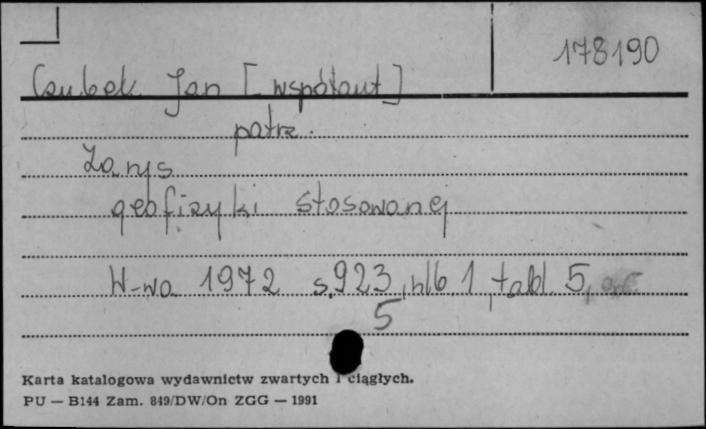 178190
Czubek Jan [współaut]
patrz.
Zarys
geofizyki stosowanej
W-wa 1972 s.923, nlb 1, tabl. 5,
5
Karta katalogowa wydawnictw zwartych i ciągłych.
PU — B144 Zam. 849/DW/On ZGG — 1991